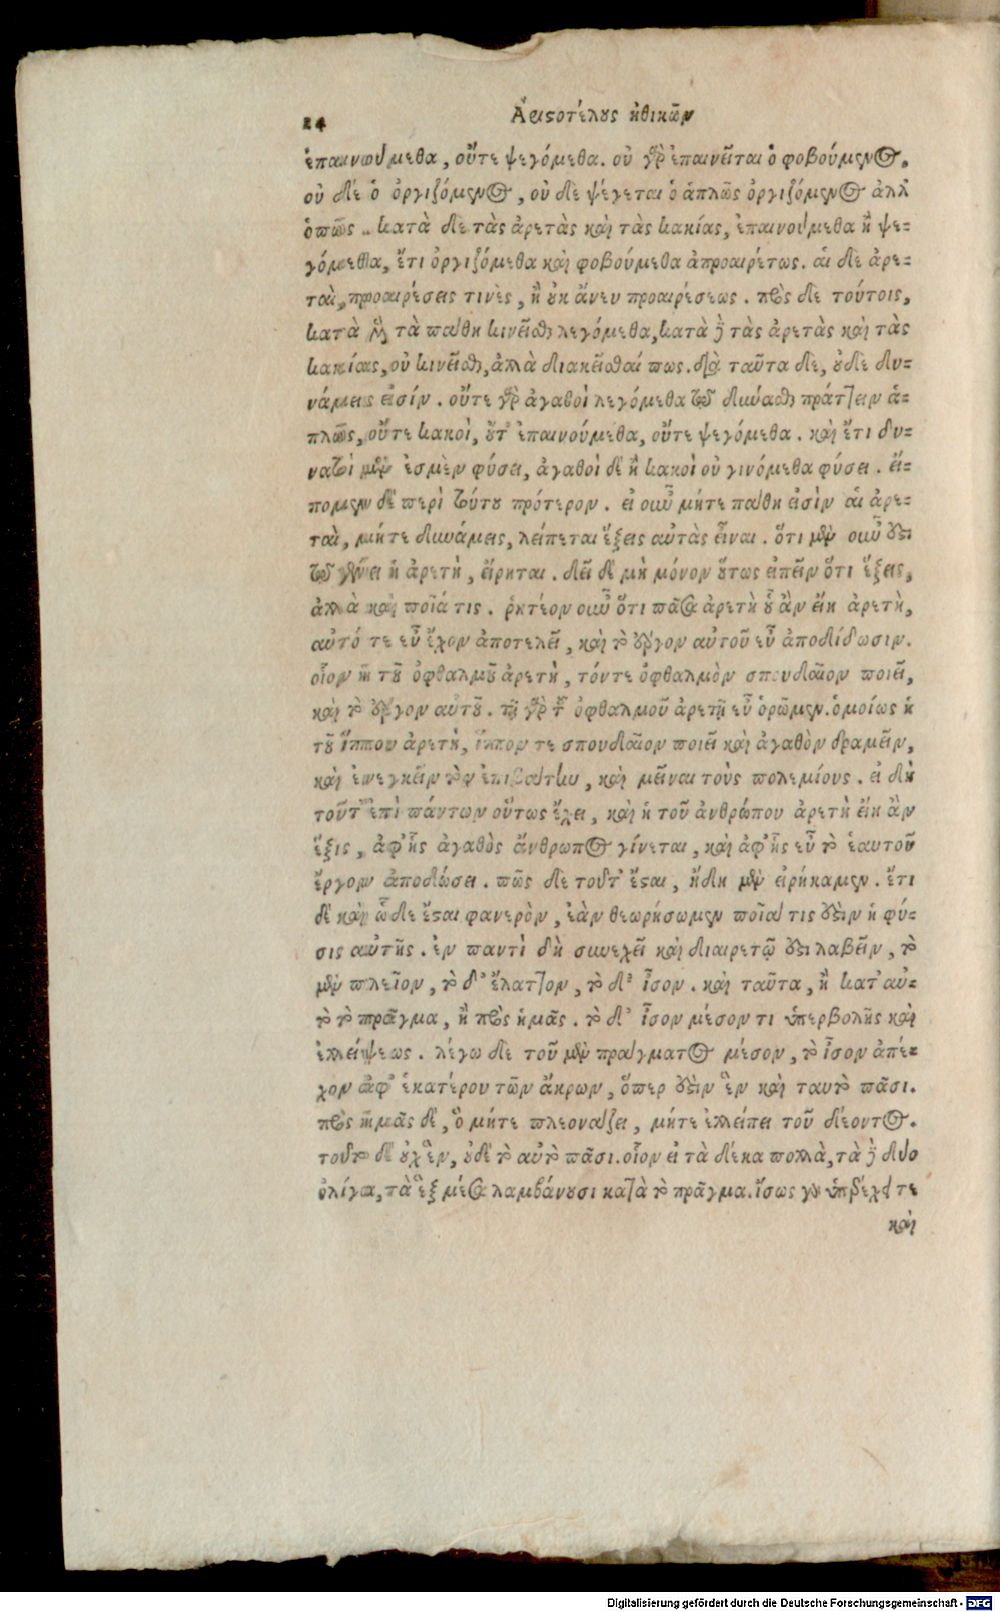 24
Ἀριστοτέλους ἠθικῶν
ἐπαινούμεθα, οὔτε ψεγόμεθα. οὐ γὰρ ἐπαινεῖται ὁ φοβούμενος,
οὐ δὲ ὁ ὀργιζόμενος, οὐ δὲ ψέγεται ὁ ἁπλῶς ὀργιζόμενος ἀλλ'
ὁ πῶς.. κατὰ δὲ τὰς ἀρετὰς καὶ τὰς κακίας, ἐπαινούμεθα ἢ ψε-
γόμεθα, ἔτι ὀργιζόμεθα καὶ φοβούμεθα ἀπροαιρέτως. αἱ δὲ ἀρε-
ταὶ, προαιρέσεις τινὲς, ἢ οὐκ ἄνευ προαιρέσεως. πρὸς δὲ τούτοις,
κατὰ μὲν τὰ πάθη κινεῖσθαι λεγόμεθα, κατὰ δὲ τὰς ἀρετὰς καὶ τὰς
κακίας, οὐ κινεῖσθαι, ἀλλὰ διακεῖσθαί πως. διὰ ταῦτα δὲ, οὐδὲ δυ-
νάμεις εἰσίν. οὔτε γὰρ ἀγαθοὶ λεγόμεθα τῷ δύνασθαι πράττειν ἁ-
πλῶς, οὔτε κακοὶ, οὔτ' ἐπαινούμεθα, οὔτε ψεγόμεθα. καὶ ἔτι δυ-
νατοὶ μὲν ἐσμὲν φύσει, ἀγαθοὶ δὲ ἢ κακοὶ οὐ γινόμεθα φύσει. εἴ-
πομεν δὲ περὶ τούτου πρότερον. εἰ οὖν μήτε πάθη εἰσὶν αἱ ἀρε-
ταὶ, μήτε δυνάμεις, λείπεται ἕξεις αὐτὰς εἶναι. ὅτι μὲν οὖν ἐστὶ
τῷ γένει ἡ ἀρετὴ, εἴρηται. δεῖ δὲ μὴ μόνον οὕτως εἰπεῖν ὅτι ἕξεις,
ἀλλὰ καὶ ποῖά τις. ῥητέον οὖν ὅτι πᾶσα ἀρετὴ οὗ ἂν εἴη ἀρετὴ,
αὐτό τε εὖ ἔχον ἀποτελεῖ, καὶ τὸ ἔργον αὐτοῦ εὖ ἀποδίδωσιν.
οἷον ἡ τοῦ ὀφθαλμοῦ ἀρετὴ, τόν τε ὀφθαλμὸν σπουδαῖον ποιεῖ,
καὶ τὸ ἔργον αὐτοῦ. τῇ γὰρ τοῦ ὀφθαλμοῦ ἀρετῇ εὖ ὁρῶμεν. ὁμοίως ἡ
τοῦ ἵππου ἀρετὴ, ἵππον τε σπουδαῖον ποιεῖ καὶ ἀγαθὸν δραμεῖν,
καὶ ἐνεγκεῖν τὸν ἐπιβάτην, καὶ μεῖναι τοὺς πολεμίους. εἰ δὴ
τοῦτ' ἐπὶ πάντων οὕτως ἔχει, καὶ ἡ τοῦ ἀνθρώπου ἀρετὴ εἴη ἂν
ἕξις, ἀφ' ἧς ἀγαθὸς ἄνθρωπος γίνεται, καὶ ἀφ' ἧς εὖ τὸ ἑαυτοῦ
ἔργον ἀποδώσει. πῶς δὲ τοῦτ' ἔσται, ἤδη μὲν εἰρήκαμεν. ἔτι
δὲ καὶ ὧδε ἔσται φανερὸν, ἐὰν θεωρήσωμεν ποία τις ἐστὶν ἡ φύ-
σις αὐτῆς. ἐν παντὶ δὴ συνεχεῖ καὶ διαιρετῷ ἐστὶ λαβεῖν, τὸ
μὲν πλεῖον, τὸ δ' ἔλαττον, τὸ δ' ἶσον. καὶ ταῦτα, ἢ κατ' αὐ-
τὸ τὸ πρᾶγμα, ἢ πρὸς ἡμᾶς. τὸ δ' ἶσον μέσον τι ὑπερβολῆς καὶ
ἐλλείψεως. λέγω δὲ τοῦ μὲν πράγματος μέσον, τὸ ἶσον ἀπέ-
χον ἀφ' ἑκατέρου τῶν ἄκρων, ὅπερ ἐστὶν ἓν καὶ ταυτὸ πᾶσι.
πρὸς ἡμᾶς δὲ, ὃ μήτε πλεονάζει, μήτε ἐλλείπει τοῦ δέοντος.
τοῦτο δὲ οὐχ ἓν, οὐδὲ τὸ αὐτὸ πᾶσι. οἷον εἰ τὰ δέκα πολλὰ, τὰ δὲ δύο
ὀλίγα, τὰ ἓξ μέσα λαμβάνουσι κατὰ τὸ πρᾶγμα. ἴσως γὰρ ὑπερέχει τε
καὶ
Digitalisierung gefördert durch die Deutsche Forschungsgemeinschaft - DFG